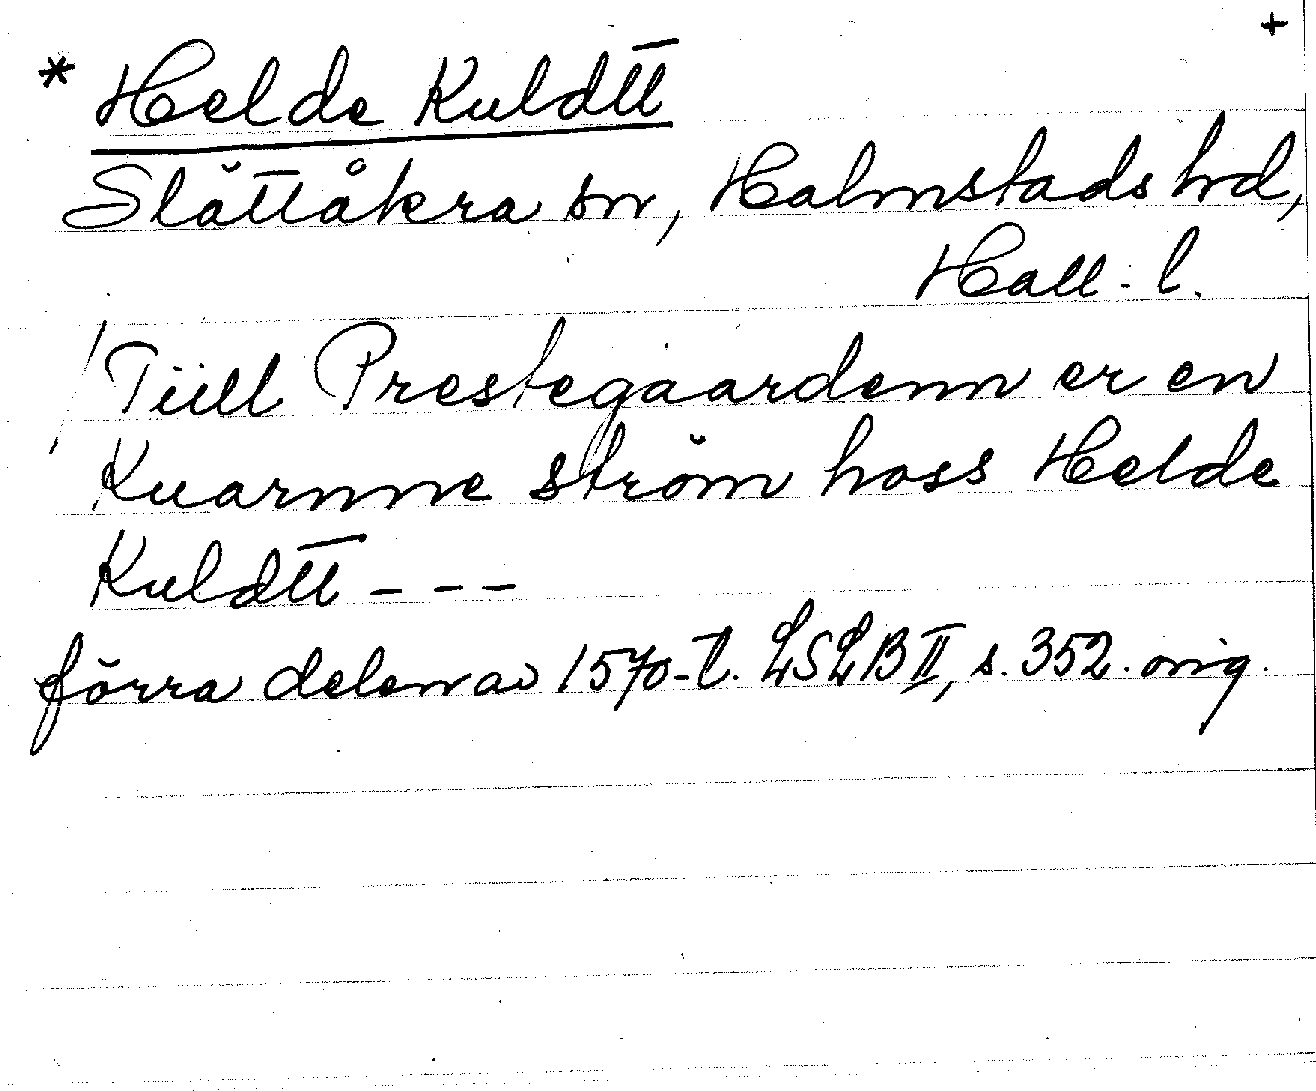 +
* Helde Kuldtt
Slättåkra sn, Halmstads hd,
Hall. l.
Tiill Prestegaardenn er en
Kuarnne ström hoss Helde
Kuldtt - - -
förra delen av 1570-t. LSLB II, s. 352. orig.